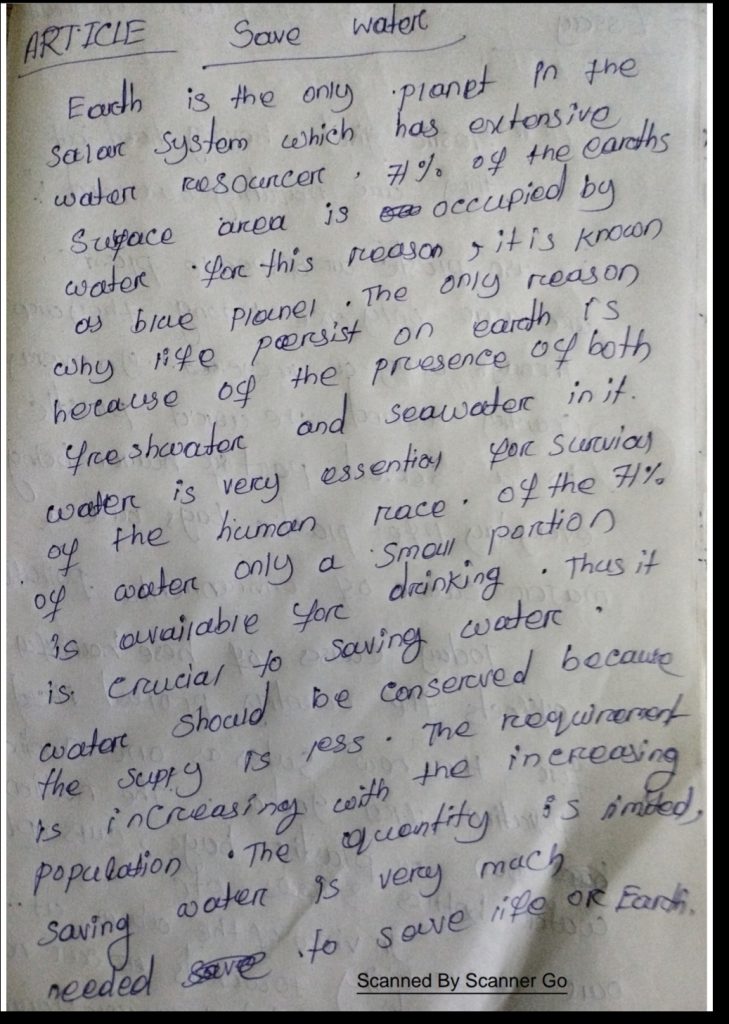 ARTICLE Save water
Earth is the only planet in the
Solar system which has extensive
water resources. 71% of the earths
Surface area is occupied by
water. for this reason, it is known
as blue planet. The only reason
why life persist on earth is
because of the presence of both
freshwater and seawater in it.
water is very essential for survial
of the human race. Of the 71%
of water only a small portion
is available for drinking. Thus it
is crucial to saving water.
water should be conserved because
the supply is less. The requirement
is increasing with the increasing
population. The quantity is limited,
Saving water is very much
needed to save life on Earth.
Scanned By Scanner Go